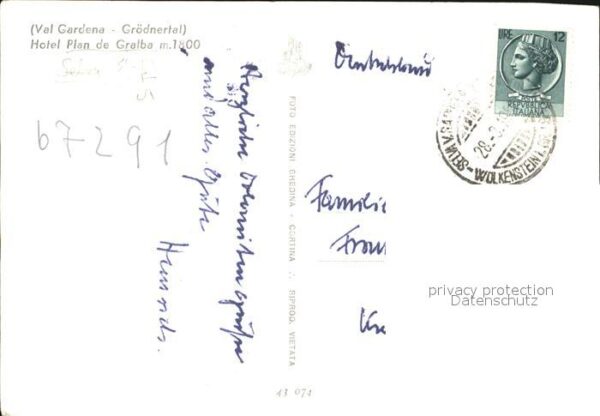 (Val Gardena - Grödnertal)
Hotel Plan de Gralba m.1800
67291
Herzliche Dolomitengrüße
und alles Gute
Heinrich.
FOTO EDIZIONI GHEDINA - CORTINA - RIPROD. VIETATA
43 074
Deutschland
LIRE 12
REPUBBLICA
ITALIANA
SELVA VAL GARDENA - WOLKENSTEIN
28.
Familie
privacy protection
Datenschutz